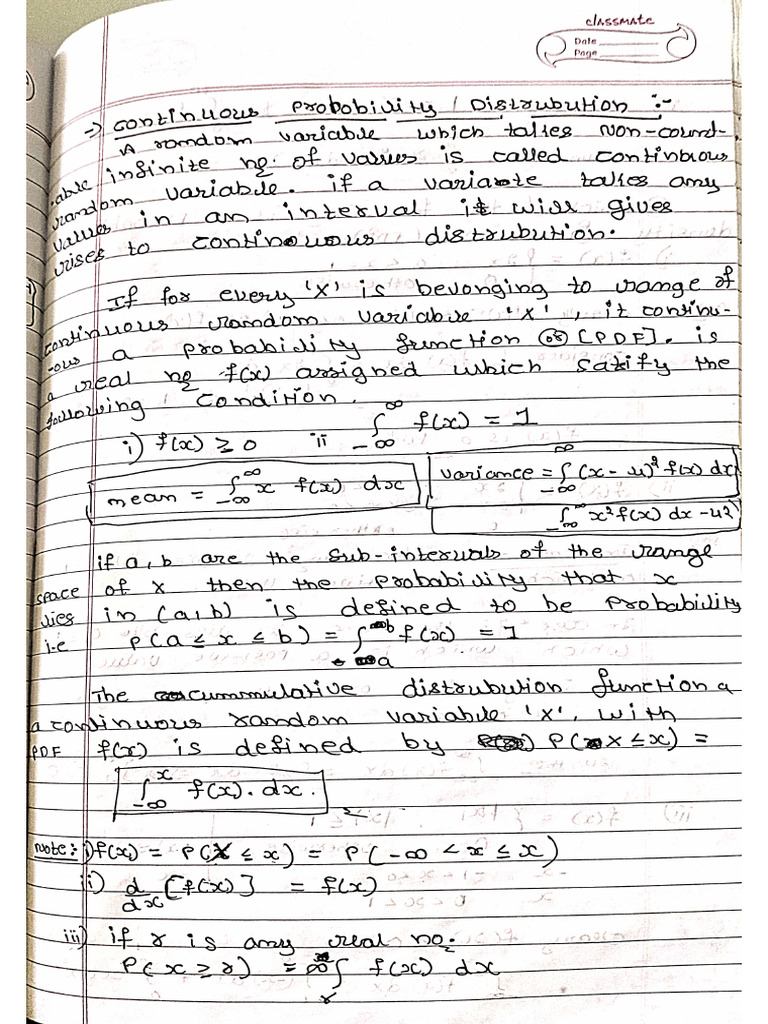 classmate
Date
Page
→ continuous Probobility Distrubution :-
A random variable which takes non-count-
able infinite no. of values is called continuous
random variable. if a variate takes any
values in an interval it will gives
rises to continuous distrubution.
If for every 'x' is belonging to range of
continuous random variable 'x', it continu-
-ous a probability function or [PDF]. is
a real no f(x) assigned which satify the
following condition.
i) f(x) ≥ 0 ii ∫_{-∞}^{∞} f(x) = 1
mean = ∫_{-∞}^{∞} x f(x) dx
variance = ∫_{-∞}^{∞} (x - u)² f(x) dx
∫_{-∞}^{∞} x² f(x) dx - u²
if a, b are the sub-intervals of the range
space of x then the probability that x
lies in (a, b) is defined to be probability
i.e P(a ≤ x ≤ b) = ∫_{a}^{b} f(x) = 1
The cummulative distrubution function a
a continuous random variable 'x', with
PDF f(x) is defined by P(X ≤ x) =
∫_{-∞}^{x} f(x). dx.
note: i) f(x) = P(X ≤ x) = P(-∞ < x ≤ x)
ii) d/dx [f(x)] = f(x)
iii) if r is any real no.
P(x ≥ r) = ∫_{r}^{∞} f(x) dx